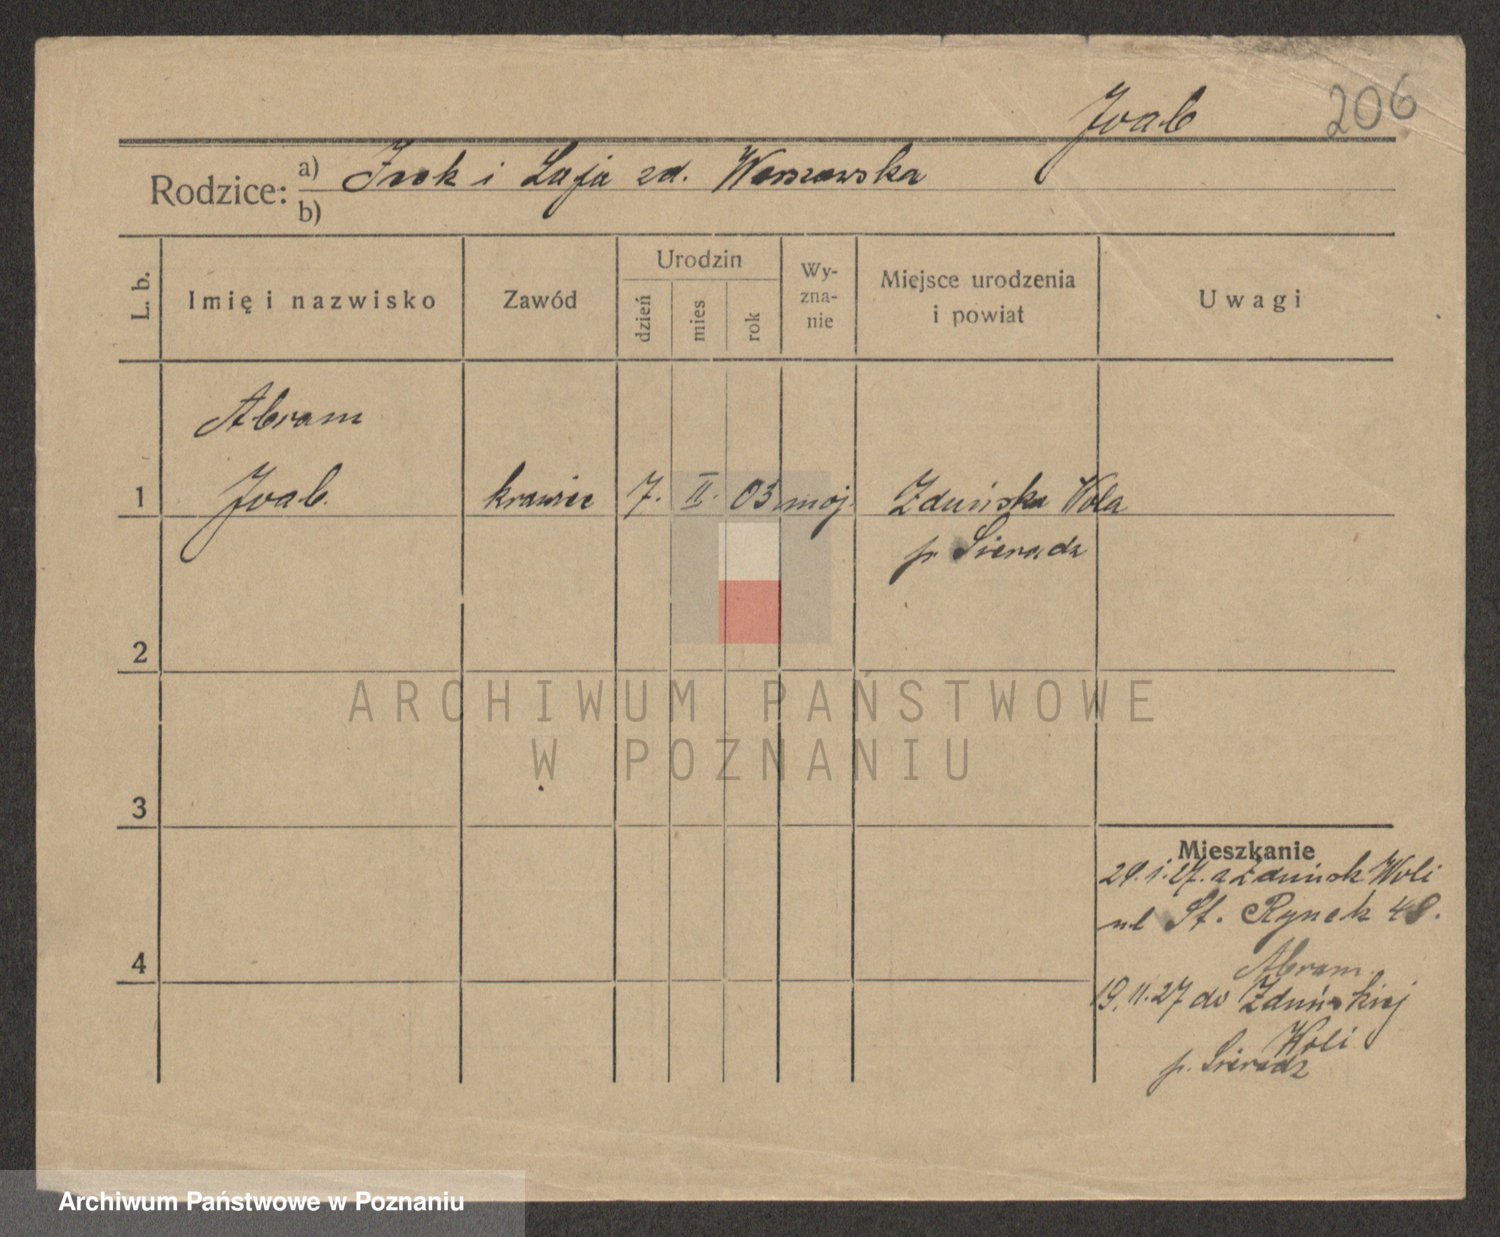 Joab
206
Rodzice: a) Icek i Łaja zd. Warszawska
b)
L. b.
Imię i nazwisko
Zawód
Urodzin
dzień
mies
rok
Wy-
zna-
nie
Miejsce urodzenia
i powiat
Uwagi
Abram
1 Joab krawiec 7. II. 03 mojż. Zduńska Wola
p. Sieradz
2
3
4
Mieszkanie
29.1.27. z Zduńsk Woli
ul St. Rynek 48.
Abram
19.11.27 do Zduńskiej
Woli
p. Sieradz
ARCHIWUM PAŃSTWOWE
W POZNANIU
Archiwum Państwowe w Poznaniu